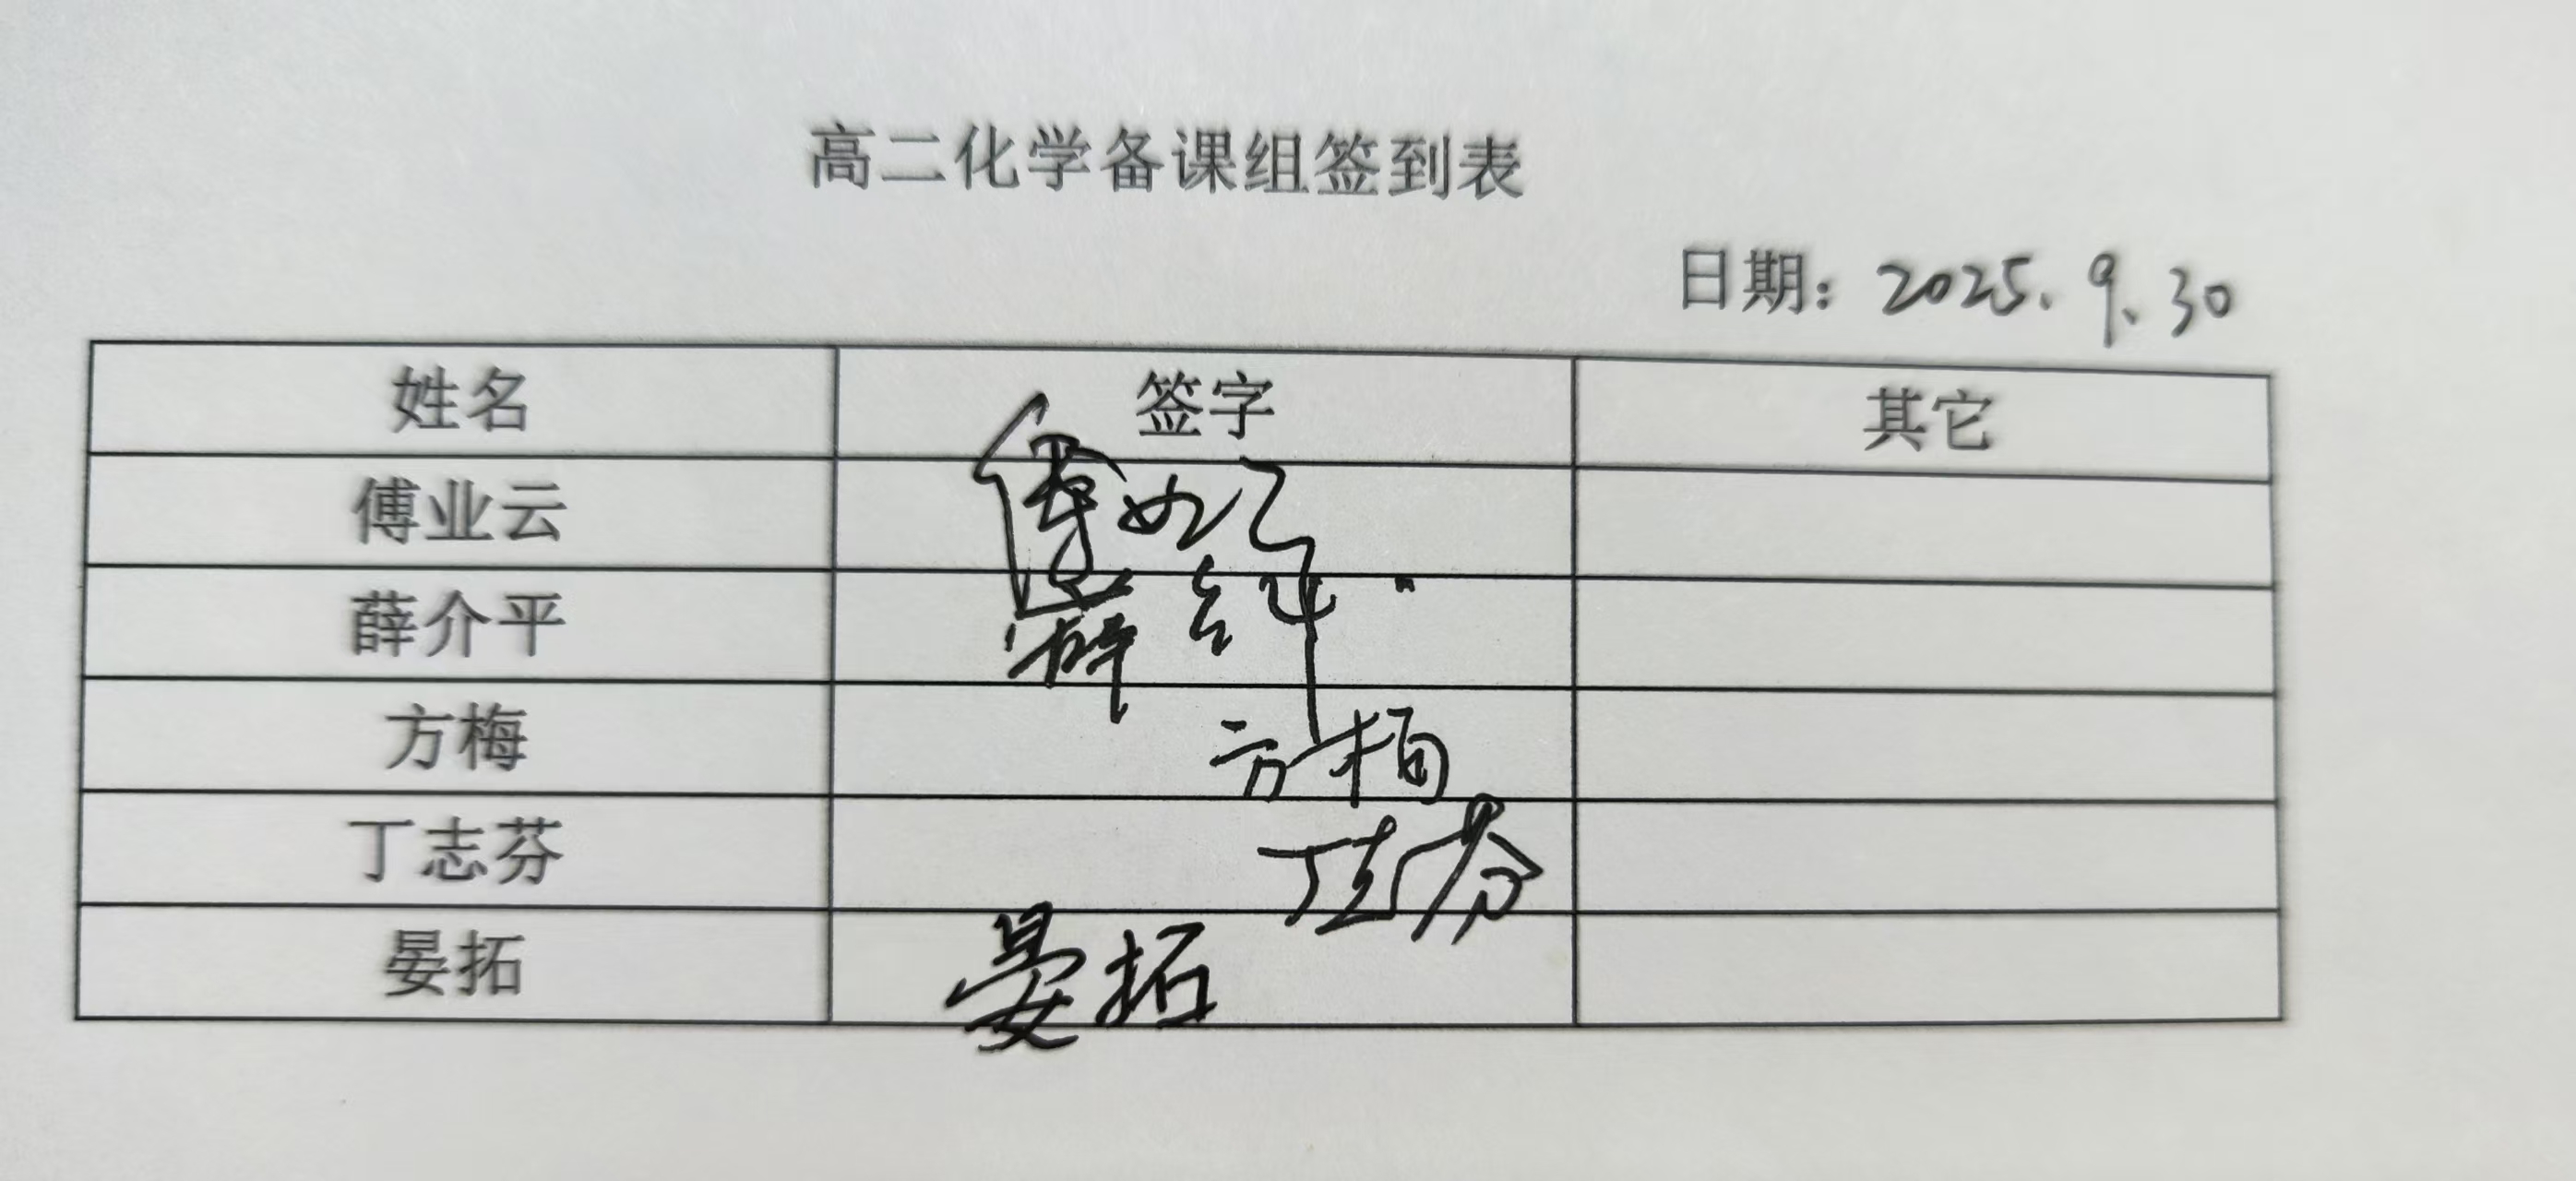 高二化学备课组签到表
日期：2025.9.30
姓名 签字 其它
傅业云 傅业云
薛介平 薛介平
方梅 方梅
丁志芬 丁志芬
晏拓 晏拓